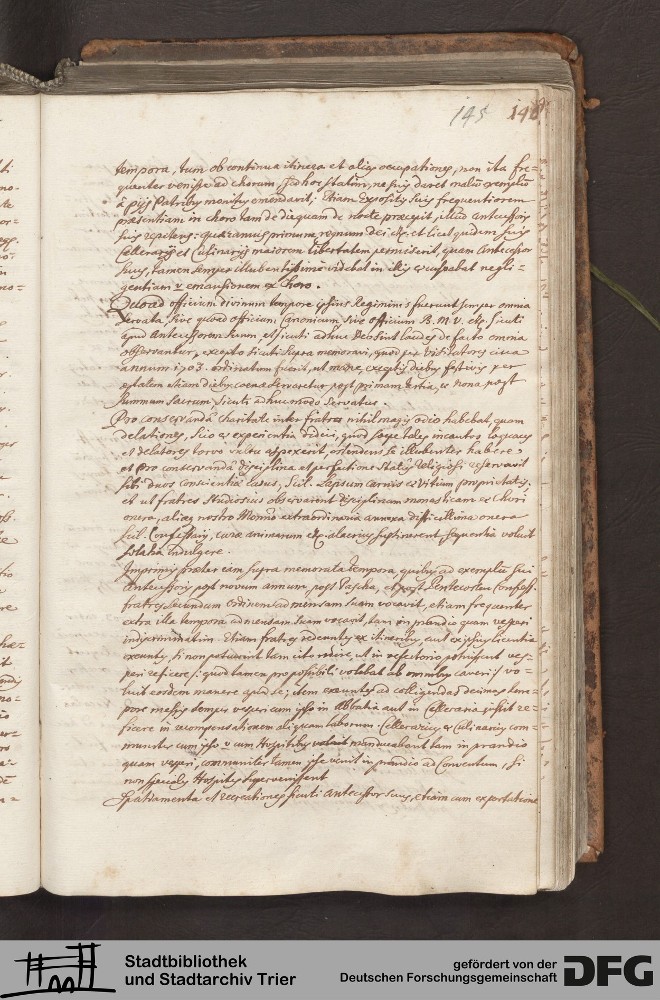 145 148
tempora, tum ob continua itinera et alias occupationes, non ita fre=
quenter venisse ad chorum, sed hoc statim, ne suis daret malum exemplum
à pijs Patribus monitus emendavit; Etiam Expositis suis frequentiorem
præsentiam in choro tam de die quam de nocte præegit, illud Antecessoris
sui repetens: quæramus primum regnum dei etc. et licet quidem suis
Cellerarijs et Culinarijs maiorem libertatem permiserit, quam Antecessor
suus, tamen semper illubentissime videbat in illis et culpabat negli=
gentium et emansionem ex Choro.
Quoad officium divinum tempore ipsius Regiminis fuerunt semper omnia
servata, sive quoad officium Canonicum, sive officium B. M. V. etc. sicuti
apud Antecessorem suum, et sicuti adhuc Deo sint laudes de facto omnia
observantur, excepto sicuti supra memoravi, quod per Visitatores circa
annum 1703. ordinatum fuerit, ut mane, exceptis diebus festivis per
æstatem etiam diebus coenæ servaretur post primam tertia, et nona post
summum sacrum, sicuti adhuc modo servatur.
Pro conservanda charitate inter fratres nihil magis odio habebat, quam
delationes, scio et experientia didici, quod sæpe tales incautos loquaces
et delatores torvo vultu aspexerit, ostendens se illubenter habere,
et pro conservanda disciplina et perfectione status religiosi reservavit
sibi duos conscientiæ casus, scil. lapsum carnis et vitium proprietatis,
et ut fratres studiosius observarent disciplinam monasticam et chori
onera, aliaque nostro Monrio extraordinaria annexa difficillima onera
scil. Confessarij, curæ animarum etc. alacrius sustinerent sequentia voluit
solatia indulgere.
Imprimis præter eam supra memorata tempora, quibus ad exemplum sui
Antecessoris post novum annum, post Pascha, et post Pentecosten
fratres secundum ordinem ad mensam suam vocavit, etiam frequenter
extra illa tempora ad mensam suam vocavit, tam in prandio quam vesperi
indiscriminatim. Etiam fratres redeuntes ex itineribus, aut ex ipsius licentia
exeuntes, si non potuerint tam cito redire, ut in refectorio potuissent ves=
peri reficere /: quod tamen pro possibili volebat ab omnibus caveri :/ vo=
luit eosdem manere apud se; item exeuntes ad colligendas decimas tem=
pore messis semper vesperi cum ipso in Abbatia aut in Celleraria jussit re=
ficere in recompensationem aliquam laborum. Cellerarius et Culinarius com=
muniter cum ipso et cum Hospitibus manducabant tam in prandio
quam vesperi, communiter tamen ipse venit in prandio ad Conventum, si
non speciales Hospites supervenissent.
Spatiamenta et recreationes sicuti Antecessor suus, etiam cum exportatione
Stadtbibliothek
und Stadtarchiv Trier
gefördert von der
Deutschen Forschungsgemeinschaft
DFG